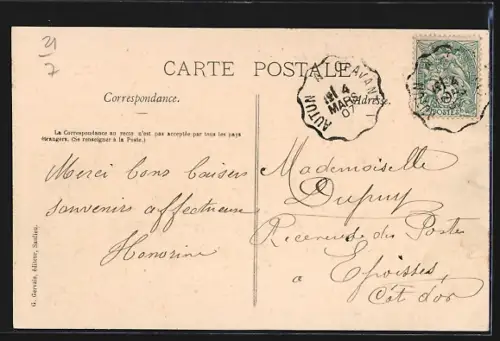 21
7
CARTE POSTALE
Correspondance.
Adresse.
La Correspondance au recto n'est pas acceptée par tous les pays
étrangers. (Se renseigner à la Poste.)
AUTUN
4
MARS
07
Merci bons baisers
souvenirs affectueux
Honorine
Mademoiselle
Dupuy
Receveuse des Postes
a Epoisses
Côt d'or
G. Gervais, éditeur, Saulieu.